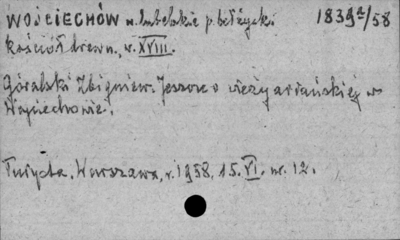 WOJCIECHÓW w. lubelskie p. bełżycki 1839a/58
kościół drewn., w. XVIII.
Góralski Zbigniew. Jeszcze o wieży ariańskiej w
Wojciechowie.
Turysta, Warszawa, r. 1958, 15. VI. nr. 12.